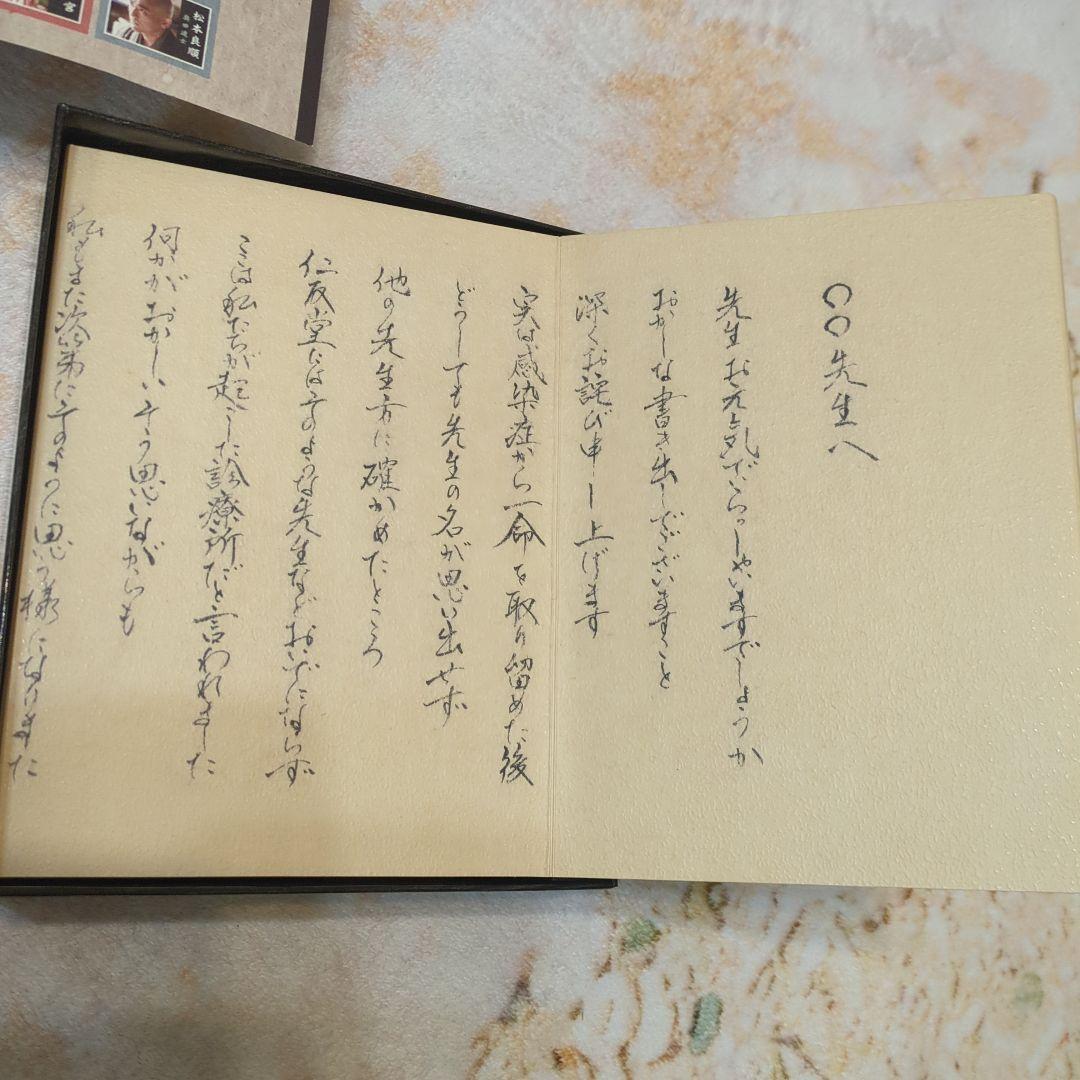 宮
松本良順
奥田達士
〇〇先生へ
先生お元気でいらっしゃいますでしょうか
おかしな書き出しでございますこと
深くお詫び申し上げます
実は感染症から一命を取り留めた後
どうしても先生の名が思い出せず
他の先生方に確かめたところ
仁友堂にはそのような先生などおいでにならず
ここは私たちが起こした診療所だと言われました
何かがおかしいそう思いながらも
私もまた次第にそのように思う様になりました